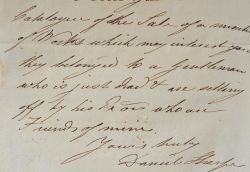 Catalogue of the Sale of a number
of Works which may interest you
they belonged to a Gentleman
who is just dead & are selling
off by his Exors who are
Friends of mine.
Yours truly
Daniel Sharpe